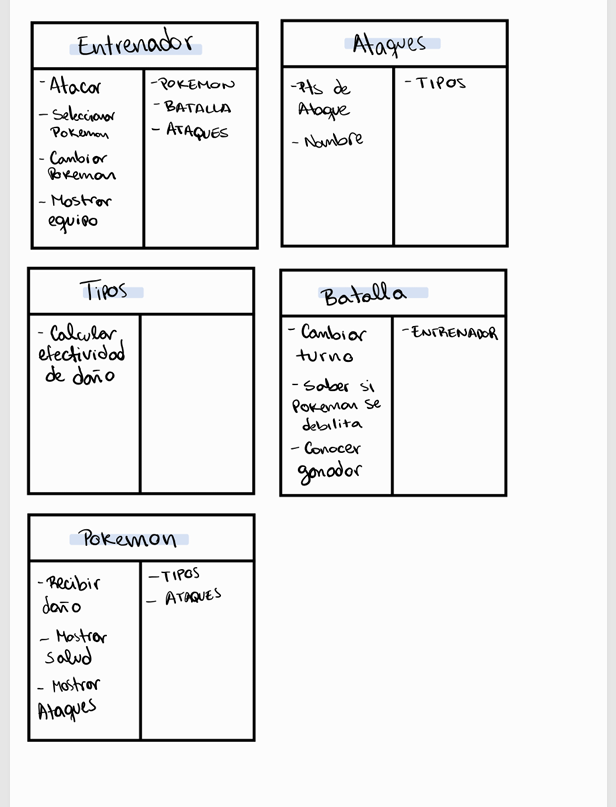 Entrenador
- Atacar
- Seleccionar
Pokemon
- Cambiar
Pokemon
- Mostrar
equipo
- POKEMON
- BATALLA
- ATAQUES
Ataques
- Pts de
Ataque
- Nombre
- TIPOS
Tipos
- Calcular
efectividad
de daño
Batalla
- Cambiar
turno
- Saber si
Pokemon se
debilita
- Conocer
ganador
- ENTRENADOR
Pokemon
- Recibir
daño
- Mostrar
salud
- Mostrar
Ataques
- TIPOS
- ATAQUES